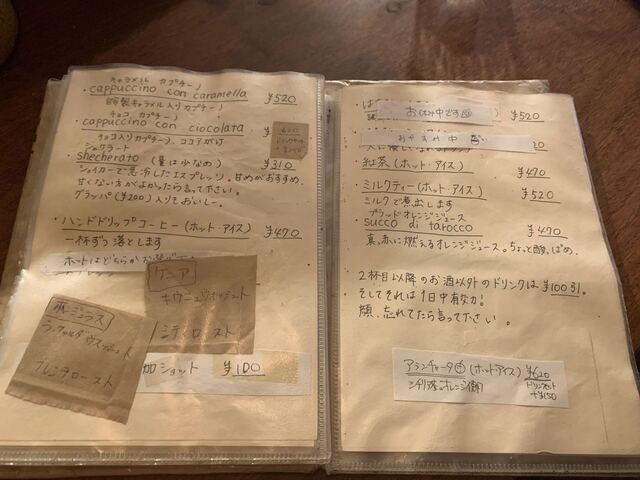 キャラメル カプチーノ
・cappuccino con caramella ¥520
自家製キャラメル入りカプチーノ
チョコ カプチーノ
・cappuccino con ciocolata
チョコ入りカプチーノ、ココアがけ
シェケラート
・shecherato (量は少なめ) ¥310
シェイカーで急冷したエスプレッソ。甘めがおすすめ。
甘くない方がよかったら言って下さい。
グラッパ(¥200)入りでおいしー。
・ハンドドリップコーヒー(ホット・アイス) ¥470
一杯ずつ落とします
ケニア
ホンジュラス
加ショット ¥100
お休み中です
¥520
おやすみ中
・紅茶(ホット・アイス) ¥470
・ミルクティー(ホット・アイス) ¥520
ミルクで煮出します
ブラッドオレンジジュース
・succo di tarocco ¥470
真赤に燃えるオレンジジュース。ちょっと酸っぱめ。
2杯目以降のお酒以外のドリンクは¥100引。
そしてそれは1日中有効!
顔、忘れてたら言って下さい。
アランチャータ(ホット・アイス) ¥620
シチリア産のオレンジ
ドリンクセット
+¥150